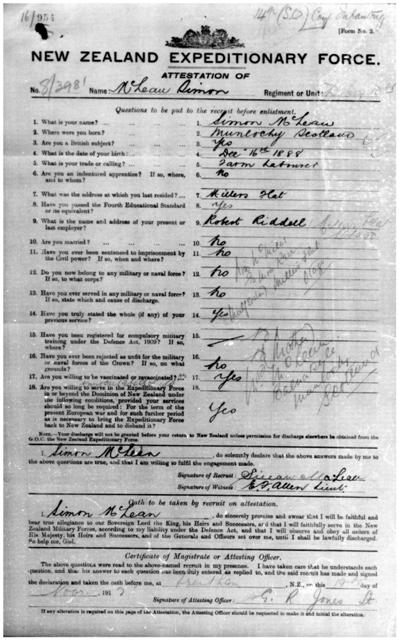 16/954
14th (S.D) Coy Infantry
[Form No. 2.
NEW ZEALAND EXPEDITIONARY FORCE.
ATTESTATION OF
No. 8/3981 Name: McLean Simon Regiment or Unit:
Questions to be put to the recruit before enlistment.
1. What is your name? 1. Simon McLean
2. Where were you born? 2. Munlochy Scotland
3. Are you a British subject? 3. Yes
4. What is the date of your birth? 4. Dec 16th 1888
5. What is your trade or calling? 5. Farm Labourer
6. Are you an indentured apprentice? If so, where, and to whom? 6. No
7. What was the address at which you last resided? 7. Millers Flat
8. Have you passed the Fourth Educational Standard or its equivalent? 8. Yes
9. What is the name and address of your present or last employer? 9. Robert Riddell
10. Are you married? 10. No
11. Have you ever been sentenced to imprisonment by the Civil power? If so, when and where? 11. No
12. Do you now belong to any military or naval force? If so, to what corps? 12. No
13. Have you ever served in any military or naval force? If so, state which and cause of discharge. 13. No
14. Have you truly stated the whole (if any) of your previous service? 14. Yes
15. Have you been registered for compulsory military training under the Defence Act, 1909? If so, where? 15.
16. Have you ever been rejected as unfit for the military or naval forces of the Crown? If so, on what grounds? 16. No
17. Are you willing to be vaccinated or revaccinated? 17. Yes
18. Are you willing to serve in the Expeditionary Force in or beyond the Dominion of New Zealand under the following conditions, provided your services should so long be required: For the term of the present European war and for such further period as is necessary to bring the Expeditionary Force back to New Zealand and to disband it? 18. Yes
Mother
McLean
Munlochy
Scotland
NOTE.—Your discharge will not be granted before your return to New Zealand unless permission for discharge elsewhere be obtained from the G.O.C. the New Zealand Expeditionary Force.
I, Simon McLean, do solemnly declare that the above answers made by me to the above questions are true, and that I am willing to fulfil the engagement made.
Signature of Recruit: Simon McLean
Signature of Witness: Allen Lieut
Oath to be taken by recruit on attestation.
I, Simon McLean, do sincerely promise and swear that I will be faithful and bear true allegiance to our Sovereign Lord the King, his Heirs and Successors, and that I will faithfully serve in the New Zealand Military Forces, according to my liability under the Defence Act, and that I will observe and obey all orders of His Majesty, his Heirs and Successors, and of the Generals and Officers set over me, until I shall be lawfully discharged. So help me, God.
Certificate of Magistrate or Attesting Officer.
The above questions were read to the above-named recruit in my presence. I have taken care that he understands each question, and that his answer to each question has been duly entered as replied to, and the said recruit has made and signed the declaration and taken the oath before me, at Trentham, N.Z., on this
Signature of Attesting Officer: Jones Lt
If any alteration is required on this page of the Attestation, the Attesting Officer should be requested to make it and initial the alteration.